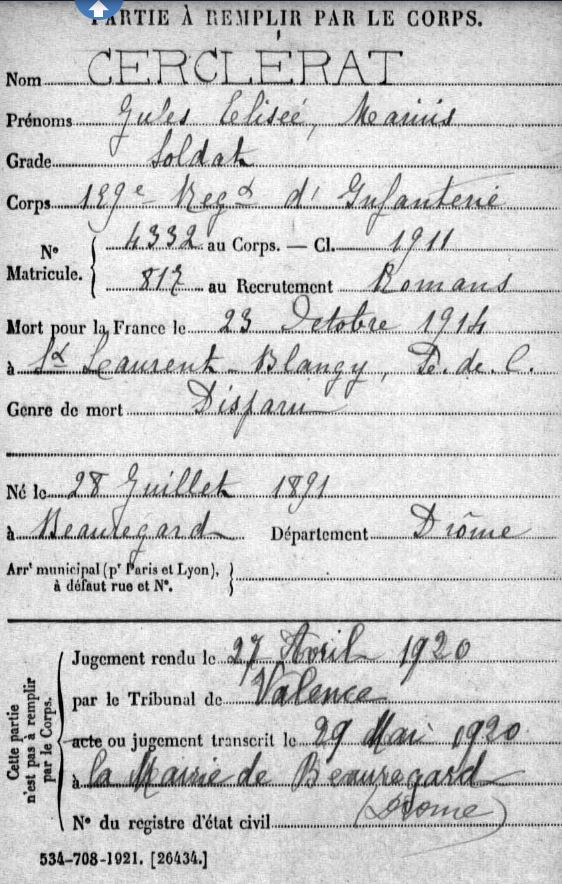 PARTIE À REMPLIR PAR LE CORPS.
Nom CERCLÉRAT
Prénoms Jules Elisée, Marius
Grade Soldat
Corps 159e Regt d'Infanterie
N° Matricule. 4332 au Corps. — Cl. 1911
817 au Recrutement Romans
Mort pour la France le 23 Octobre 1914
à St Laurent-Blangy, P. de. C.
Genre de mort Disparu
Né le 28 Juillet 1891
à Beauregard Département Drôme
Arrt municipal (pr Paris et Lyon),
à défaut rue et N°.
Cette partie n'est pas à remplir par le Corps.
Jugement rendu le 27 Avril 1920
par le Tribunal de Valence
acte ou jugement transcrit le 29 Mai 1920
à la Mairie de Beauregard
(Drome)
N° du registre d'état civil
534-708-1921. [26434.]